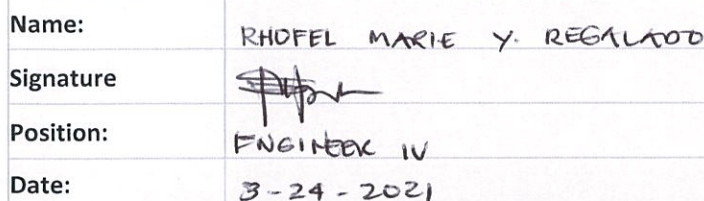 Name: RHOFEL MARIE Y. REGALADO
Signature
Position: ENGINEER IV
Date: 3-24-2021